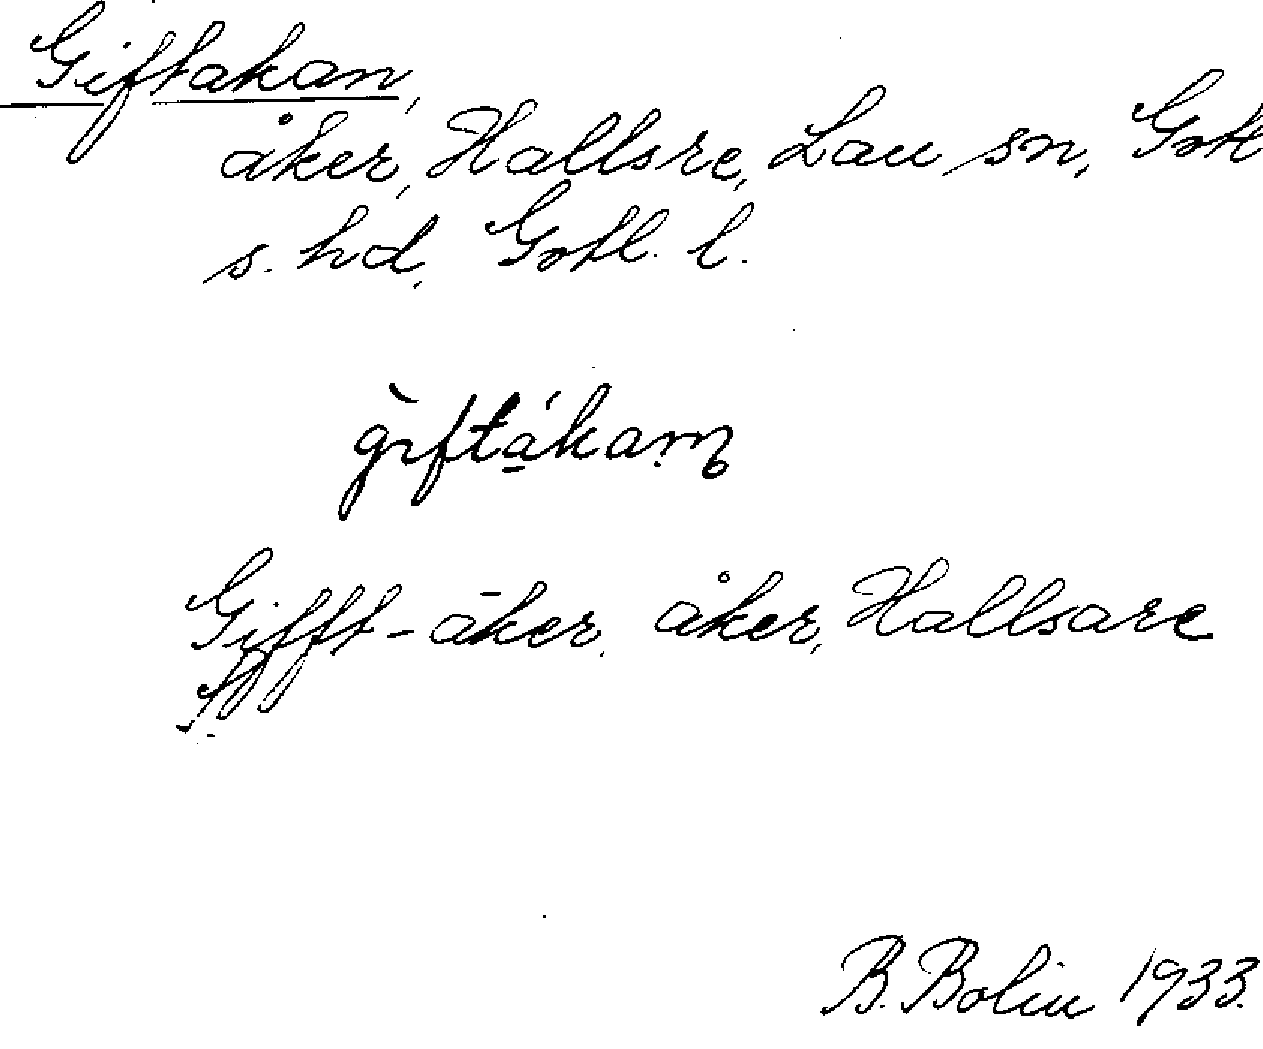 Giftakan,
åker, Hallsre, Lau sn, Gotl
s. hd, Gotl. l.
Gifft-åker, åker, Hallsare
B. Bolin 1933.